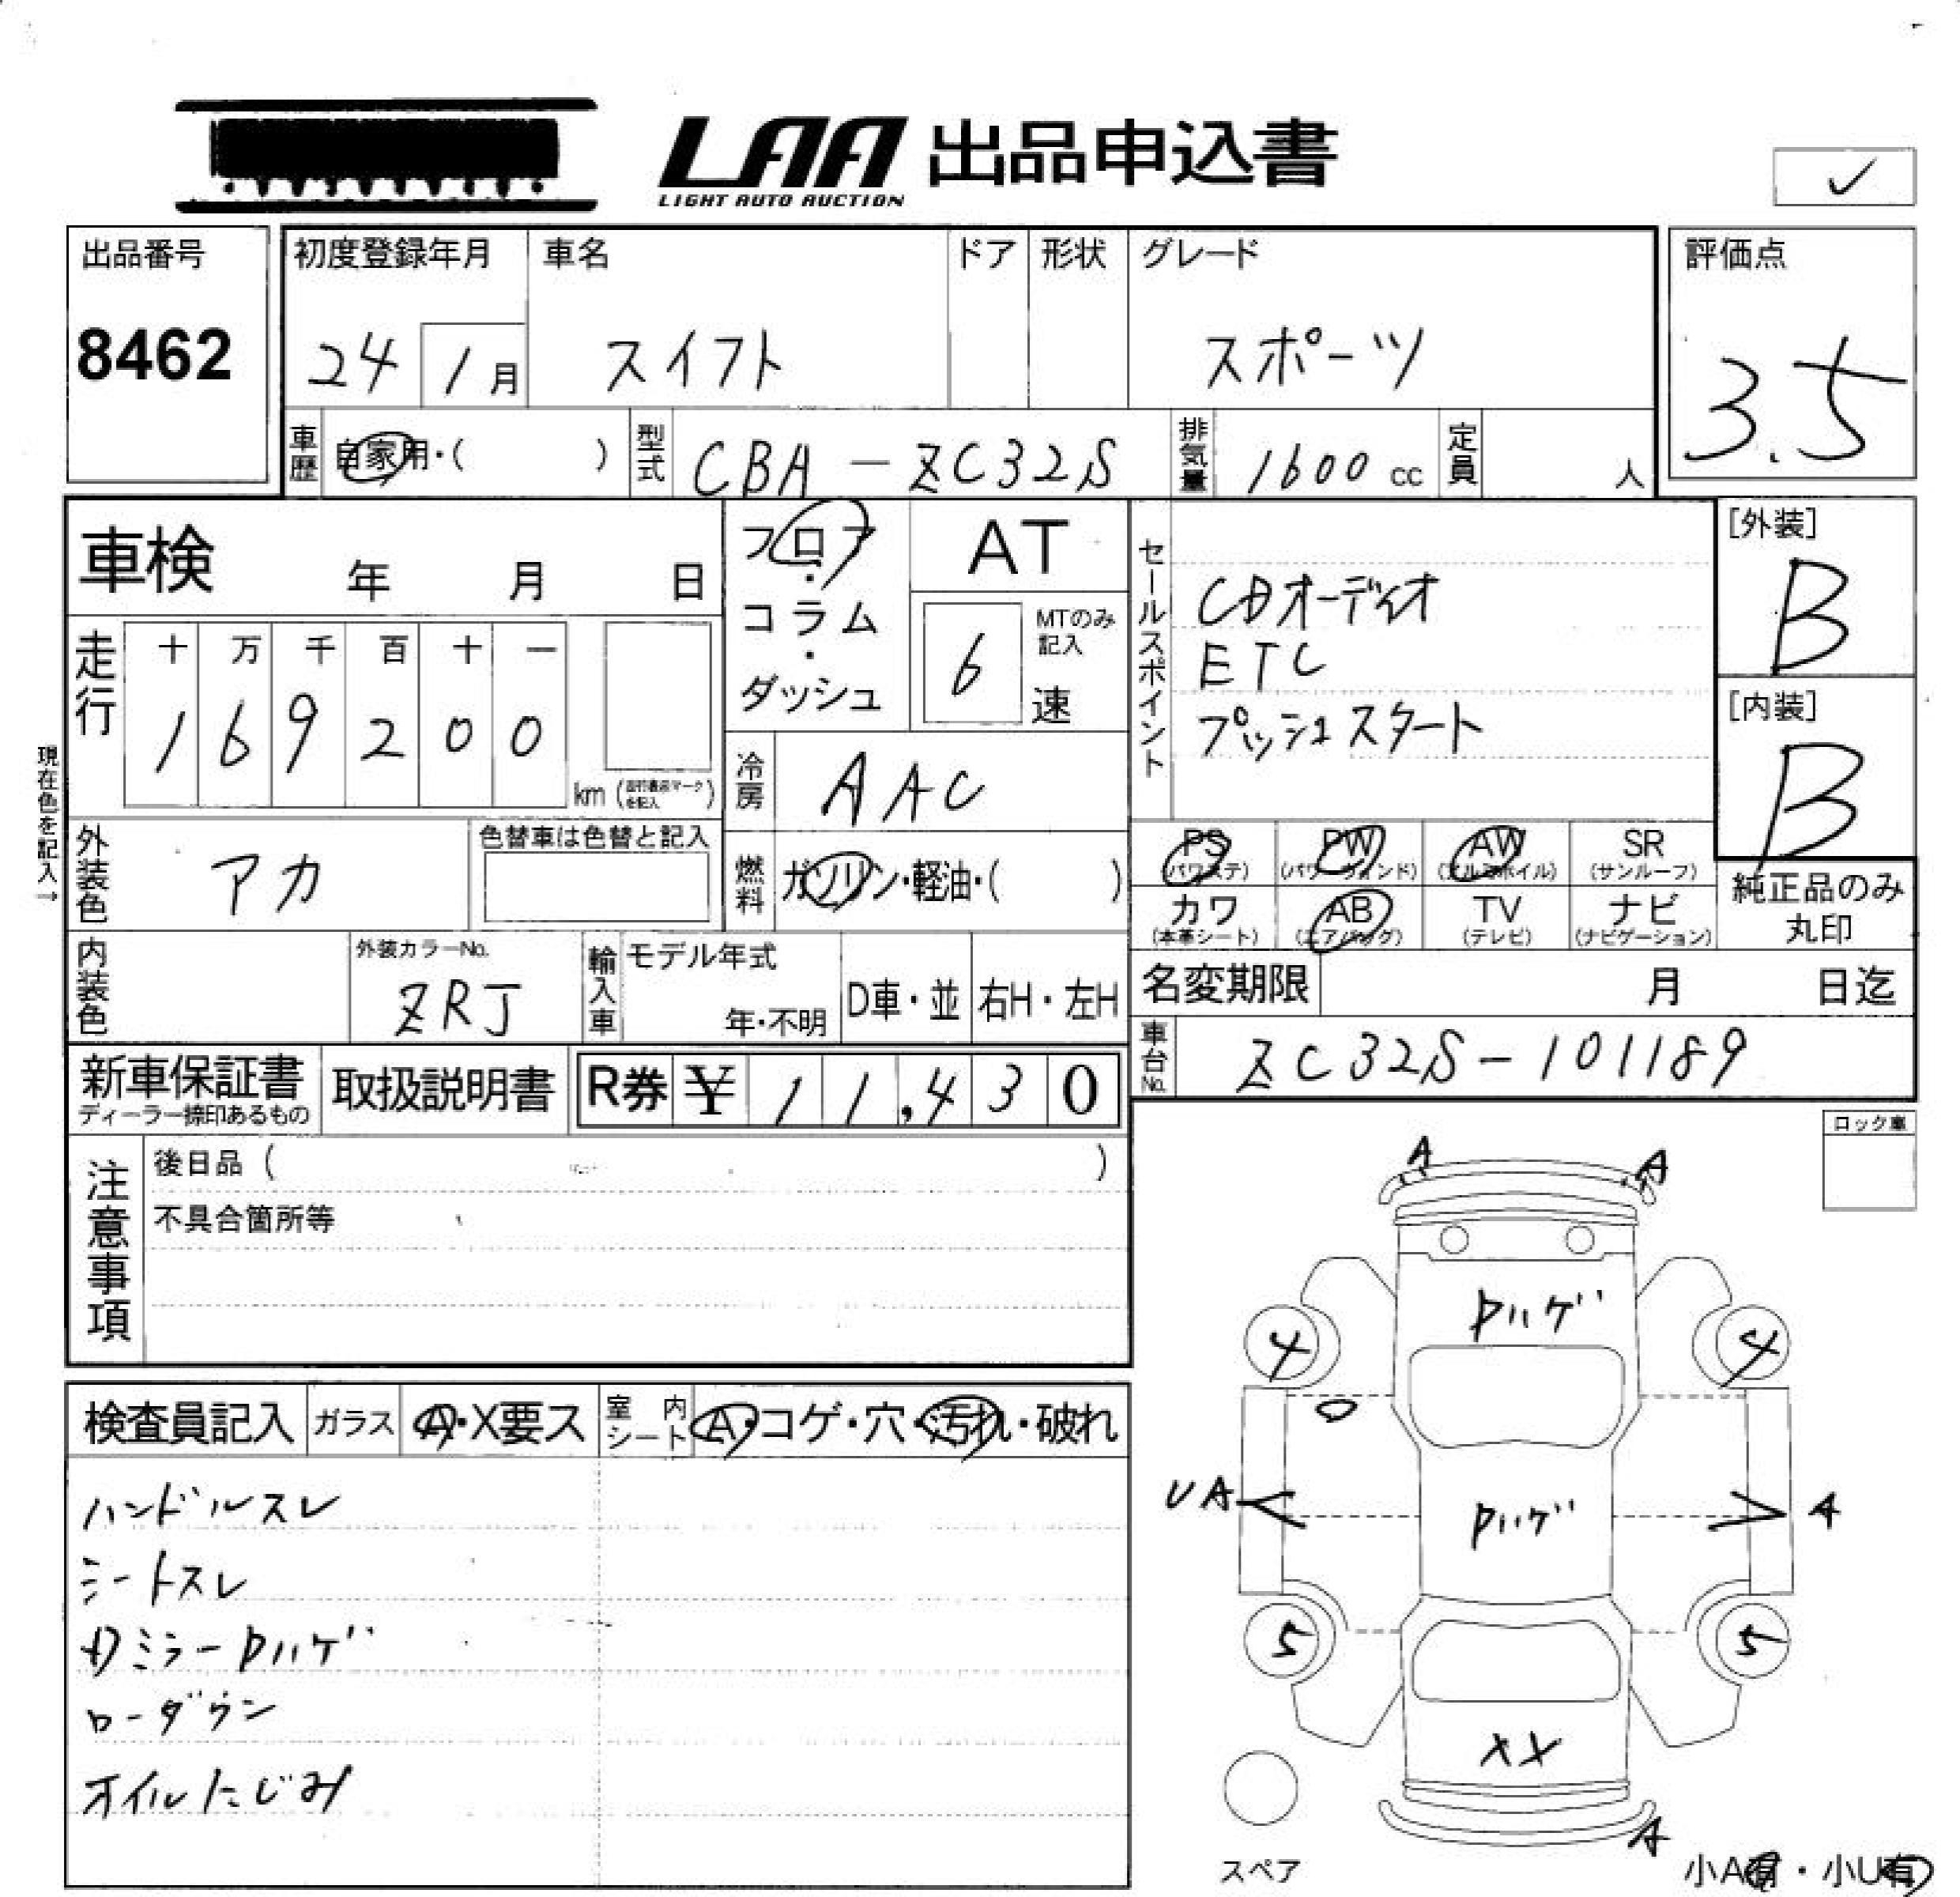 LAA 出品申込書
LIGHT AUTO AUCTION
✓
出品番号
8462
初度登録年月
24 1月
車名
スイフト
ドア
形状
グレード
スポーツ
評価点
3.5
車歴 自家用・( )
型式 CBA-ZC32S
排気量 1600 cc
定員 人
車検 年 月 日
フロア・コラム・ダッシュ
AT
MTのみ記入
6 速
セールスポイント
CDオーディオ
ETC
プッシュスタート
[外装]
B
[内装]
B
走行
十 万 千 百 十 一
1 6 9 2 0 0
km
現在色を記入→
冷房 AAC
外装色 アカ
色替車は色替と記入
燃料 ガソリン・軽油・( )
PS AW SR
(パワステ) (サンルーフ)
PW
カワ AB TV ナビ
(本革シート) (エアバッグ) (テレビ) (ナビゲーション)
純正品のみ
丸印
内装色
外装カラーNo.
ZRJ
輸入車
モデル年式
年・不明
D車・並
右H・左H
名変期限 月 日迄
車台No. ZC32S-101189
新車保証書
ディーラー捺印あるもの
取扱説明書
R券 ¥ 11,430
注意事項
後日品 ( )
不具合箇所等
ロック車
A A
Pハゲ
4 4
UA
Pハゲ
A
5 5
XX
A
スペア
小A有・小U有
検査員記入
ガラス A・X要ス
室内シート A・コゲ・穴・汚れ・破れ
ハンドルスレ
シートスレ
ミラーPハゲ
ローダウン
オイルにじみ